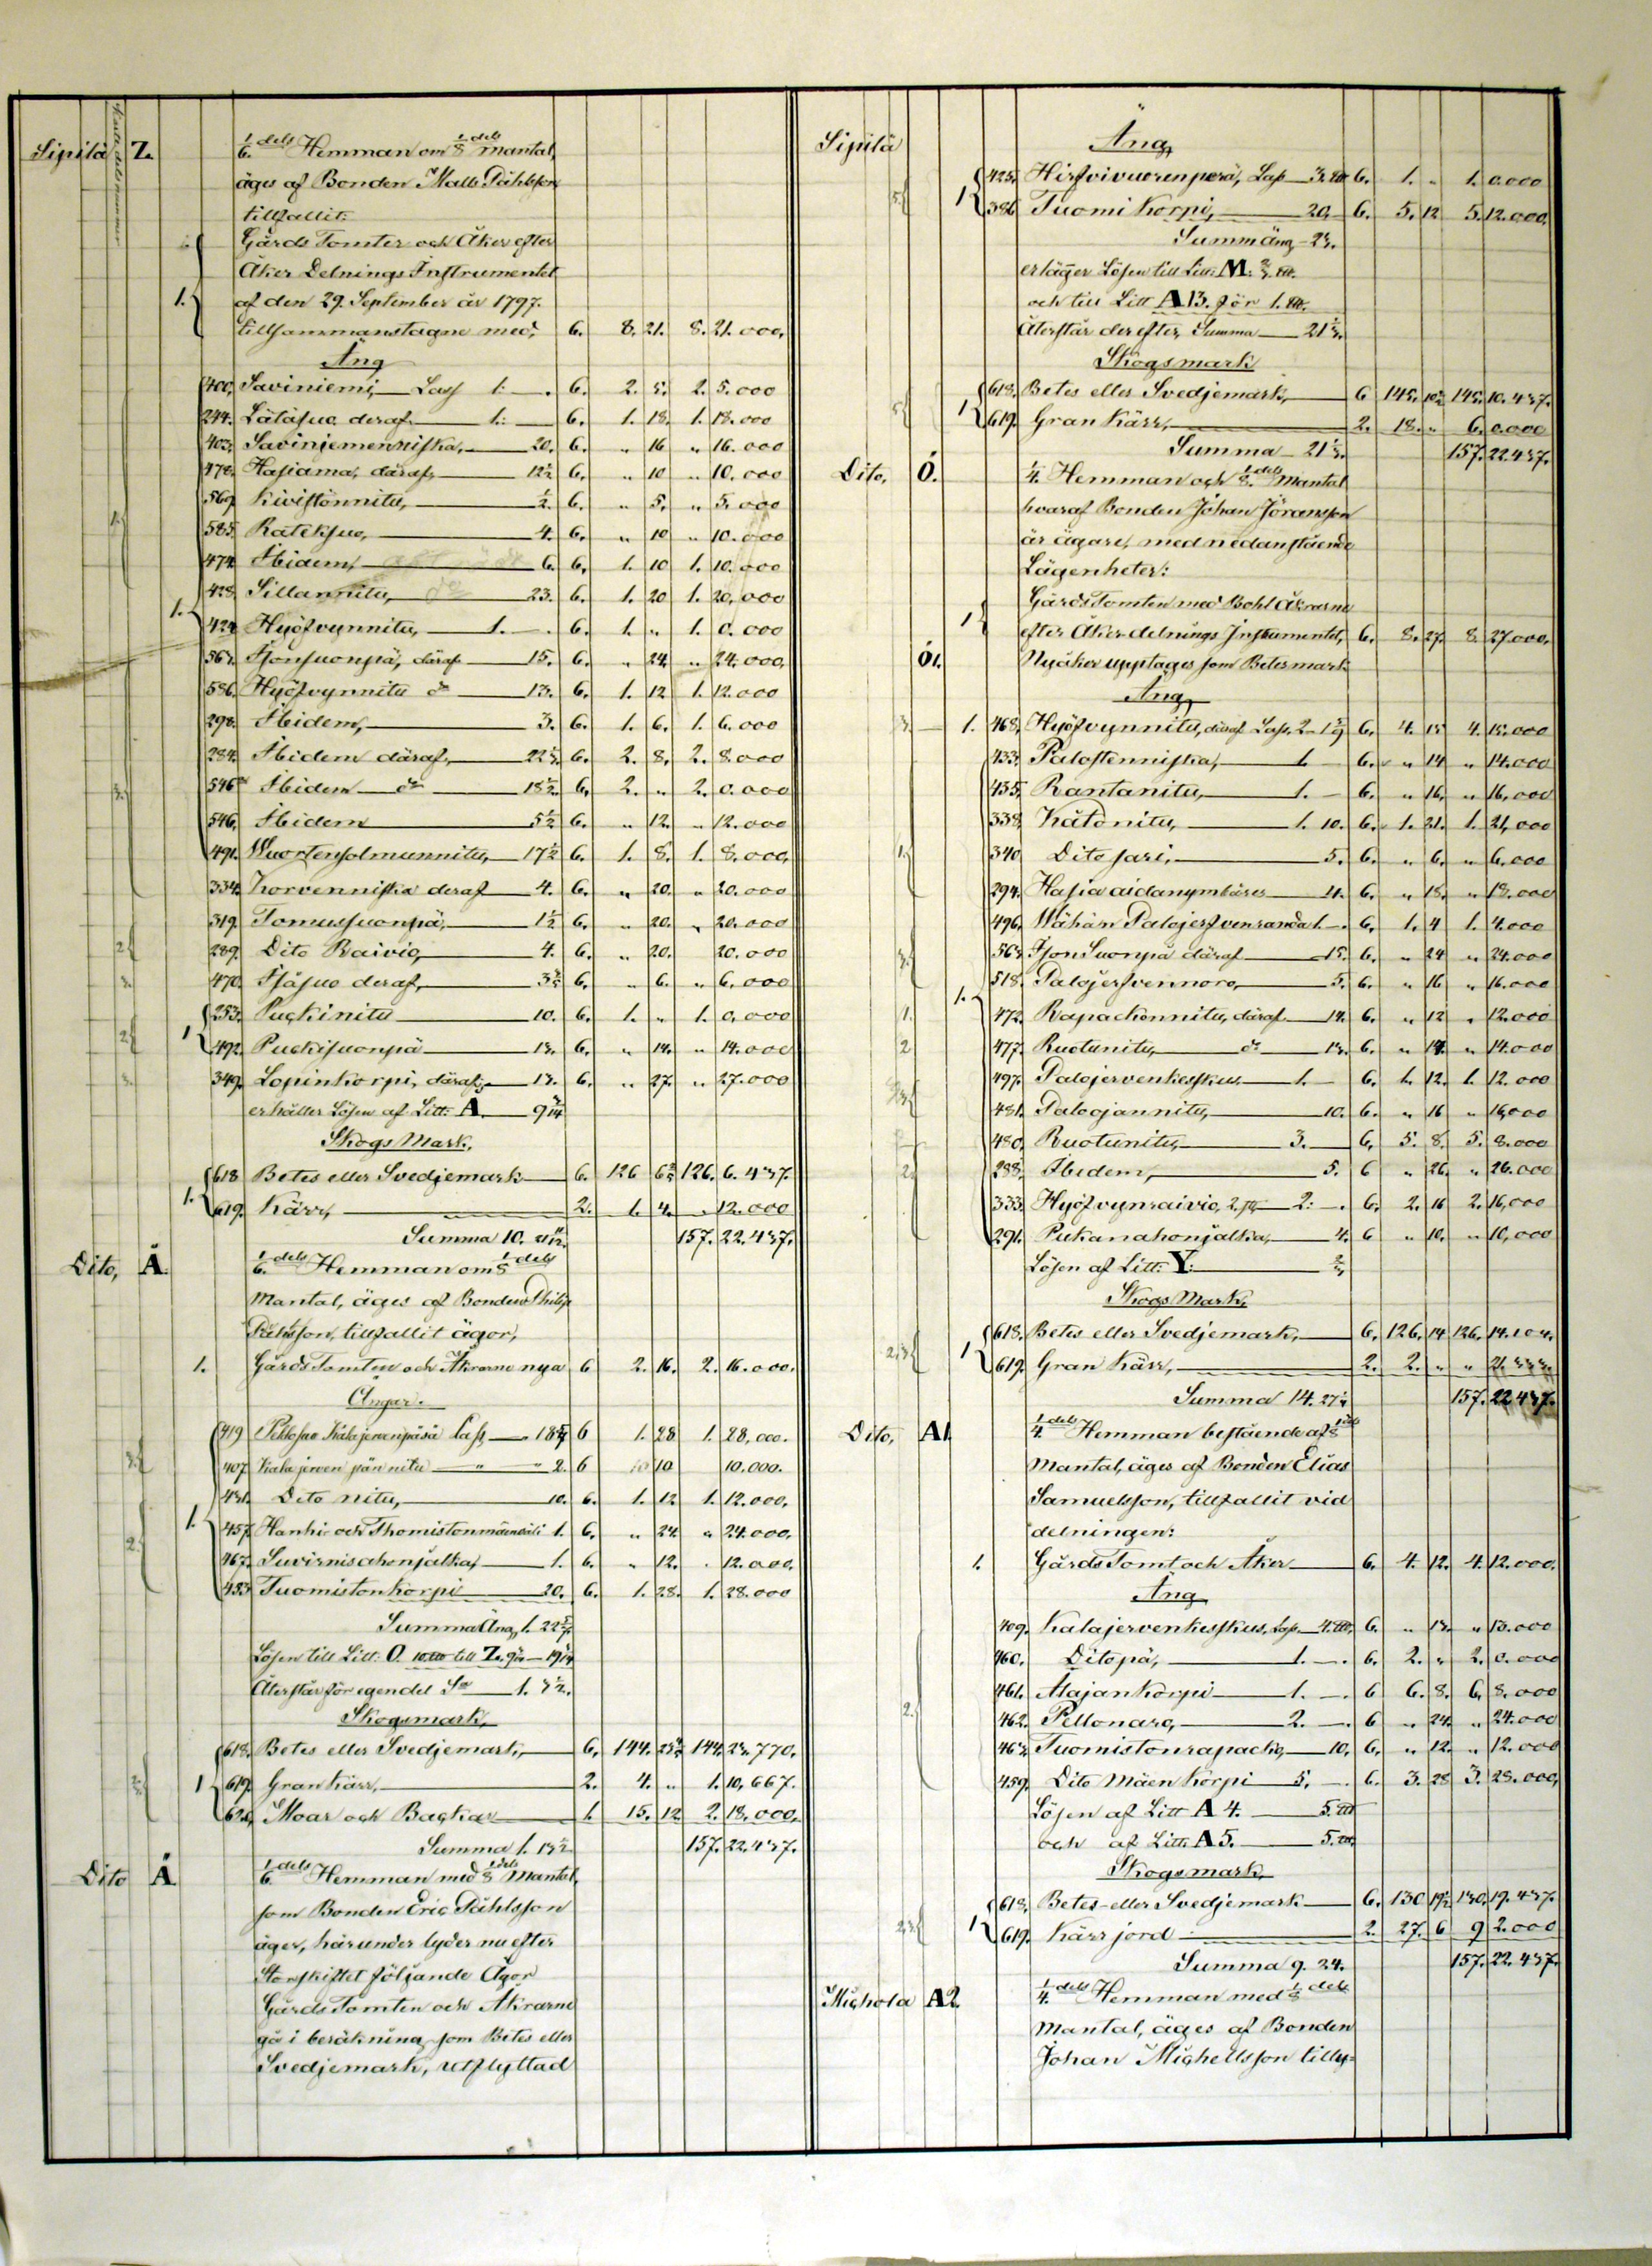 Sipilä Z. 1/6 dels Hemman om 1/8 dels mantal,
äges af Bonden Matts Påhlsson
tillfallit:
Gårds Tomter och Åker efter
Åker Delnings Instrumentet
1. af den 29. September år 1797.
tillsammanstagne med, 6. 8. 21. 8. 21.000.
Äng
400. Saviniemi, Lass 1. 6. 2. 5. 2. 5.000
244. Lätäsuo deraf 1. 6. 1. 18. 1. 18.000
403. Savinjemenniska, 20. 6. „ 16 „ 16.000
478. Hasiama, däraf, 12½ 6. „ 10 „ 10.000
569. Kivistönnitu, ½. 6. „ 5. „ 5.000
585. Rateksuo, 4. 6. „ 10 „ 10.000
474. Ibidem, 6. 6. 1. 10 1. 10.000
428. Sillannitu, 23. 6. 1. 20 1. 20.000
1. 424. Hyöfvynnitu, 1. 6. 1. „ 1. 0.000
563. Isonsuonpä, däraf 15. 6. „ 24. „ 24.000
586. Hyöfvynnitu do 13. 6. 1. 12 1. 12.000
298. Ibidem, 3. 6. 1. 6. 1. 6.000
284. Ibidem däraf, 6. 2. 8. 2. 8.000
546. Ibidem do 18½. 6. 2. „ 2. 0.000
546. Ibidem 5½ 6. „ 12. „ 12.000
491. Wuortensolmunnitu, 17½ 6. 1. 8. 1. 8.000
334. Korvenniska deraf 4. 6. „ 20. „ 20.000
319. Tomussuonpä, 1½ 6. „ 20. „ 20.000
289. Dito Raivio, 4. 6. „ 20. 20.000
470. Isäsuo deraf, 6. „ 6. „ 6.000
253. Puckinitu 10. 6. 1. „ 1. 0.000
1 492. Puckisuonpä 13. 6. „ 14. „ 14.000
349. Lopinkorpi, däraf, 13. 6. „ 27. „ 27.000
erhåller Lösen af Litt: A.
Skogs Mark.
618 Betes eller Svedjemark 6. 126 126. 6.437.
1. 619. Kärr, 2. 1. 4. „ 12.000
Summa 10. 157. 22.437.
Dito, Ä. 1/6. dels Hemman om 1/8 dels
Mantal, äges af Bonden Philip
Påhlsson, tillfallit ägor,
1. Gårds Tomten och Åkrarne nya 6 2. 16. 2. 16.000.
Ängar.
419 Kalajervenpäsä Lass 6 1. 28 1. 28.000.
407. Kalajerven pän nitu „ „ 2. 6 10 10.000.
Dito nitu, 10. 6. 1. 12 1. 12.000.
1. 457. Hanhi- och Thomistonmäen 1. 6. „ 24. „ 24.000.
467. Suvirnisahonjalka, 1. 6. „ 12. „ 12.000.
453. Tuomistonkorpi 20. 6. 1. 28. 1. 28.000
Summa Äng, 1.
Lösen till Litt: O. till Z.
Återstår för egen del Sa 1.
Skogsmark.
618. Betes eller Svedjemark, 6. 144. 144. 23.770.
1 619. Gran Kärr, 2. 4. „ 1. 10.667.
Moar och Backar 15. 12. 2. 18.000.
Summa 1. 157. 22.437.
Dito Å 1/6. dels Hemman med 1/8 dels Mantal,
som Bonden Eric Påhlsson
äger, härunder lyder nu efter
Storskiftet följande Ägor
Gårds Tomten och Åkrarne
gå i beräkning som Betes eller
Svedjemark, utflyttad
Sipilä Äng
425. Hirfvivuorenperä, Lass 3. 6. 1. „ 1. 0.000
1 386 Tuomikorpi, 20. 6. 5. 12 5. 12.000
Summa Äng
erlägger Lösen till Litt: M:
och till Litt A 13. för 1.
Återstår derefter, Summa
Skogsmark
618. Betes eller Svedjemark, 6 145. 145. 10.437.
1 619. Gran Kärr, 2. 18. „ 6. 0.000
Summa 157. 22.437.
Dito, Ö. 1/4. Hemman och 1/8. dels Mantal
hvaraf Bonden Johan Jöransson
är ägare, med nedanstående
Lägenheter:
Gårds Tomten med Bohl Åkrarne
1 efter Åker delnings Instrumentet, 6. 8. 27. 8. 27.000.
Ö1. Nyåker upptages som Betesmark
Äng
1. 468. Hyöfvynnitu, däraf Lass, 6. 4. 15 4. 15.000
433. Palostenniska, 1. 6. „ 14 „ 14.000
435. Rantanitu, 1. 6. „ 16. „ 16.000
338. Kätönitu, 1. 10. 6. 1. 21. 1. 21.000
340 Dito sari, 5. 6. „ 6. „ 6.000
294. Hasia aidanymbäres 4. 6. „ 18. „ 18.000
496. Wähän Palojerfvenranda 1. 6. 1. 4 1. 4.000
563. Isonsuonpä däraf 15. 6. „ 24 „ 24.000
518. Palojerfvennoro, 5. 6. „ 16 „ 16.000
1. 472. Rapackonnitu, däraf 14. 6. „ 12 „ 12.000
477. Ruotunitu, do 13. 6. „ 14. „ 14.000
497. Palojervenkeskus 1. 6. 1. 12. 1. 12.000
481. Palogannitu, 10. 6. „ 16 „ 16.000
480. Ruotunitu, 3. 6. 5. 8. 5. 8.000
288. Ibidem, 5. 6 „ 26. „ 26.000
333. Hyöfvynraivio, 2: 6. 2. 16 2. 16.000
291. Pukanahonjalka, 4. 6 „ 10. „ 10.000
Lösen af Litt: Y:
Skogs Mark,
618. Betes eller Svedjemark, 6. 126. 14 126. 14.104.
1 619. Gran Kärr, 2. 2. „ „
Summa 14. 157. 22.437.
Dito, A1. 1/4. dels Hemman bestående af 1/8 dels
Mantal, äges af Bonden Elias
Samuelsson, tillfallit vid
delningen:
1. Gårds Tomt och Åker 6. 4. 12. 4. 12.000.
Äng
409. Kalajervenkeskus, Lass 4. 6. „ 13. „ 13.000
460. Dito pä, 1. 6. 2. „ 2. 0.000
461. Alajankorpi 1. 6 6. 8. 6. 8.000
462. Pellonaro, 2. 6 „ 24. „ 24.000
463. Tuomistonrapacko, 10. 6. „ 12. „ 12.000
459. Dito Mäen Korpi 5. 6. 3. 28 3. 28.000
Lösen af Litt A 4. 5.
och af Litt: A 5. 5.
Skogsmark,
618. Betes- eller Svedjemark 6. 130 130. 19.437.
1 619. Kärr jord 2. 27. 6 9 2.000
Summa 9. 24. 157. 22.437.
Mickola A2. 1/4. dels Hemman med 1/8 dels
Mantal, äges af Bonden
Johan Michellsson tilly-